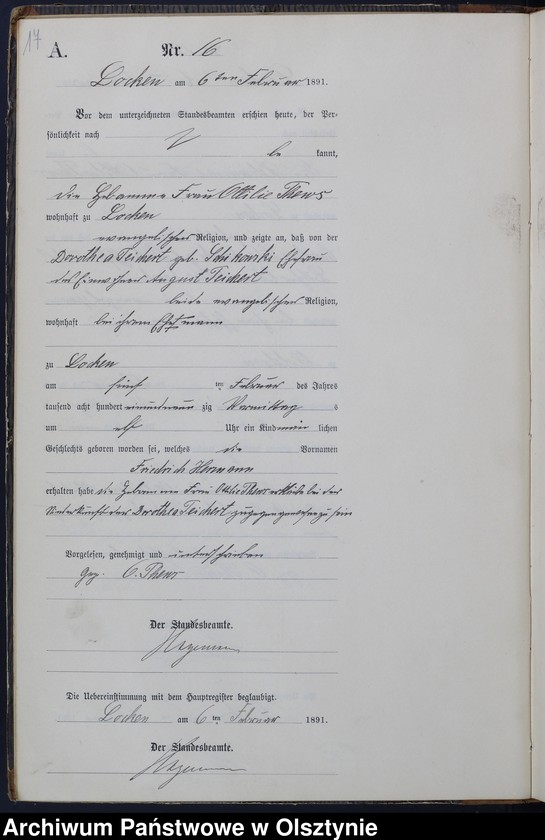 17
A. Nr. 16
Locken am 6ten Februar 1891.
Vor dem unterzeichneten Standesbeamten erschien heute, der Per-
sönlichkeit nach
be kannt,
die Hebamme Frau Ottilie Thews
wohnhaft zu Locken
evangelischer Religion, und zeigte an, daß von der
Dorothea Teichert geb. Schikowski Ehefrau
des Einwohners August Teichert
beide evangelischer Religion,
wohnhaft bei ihrem Ehemann
zu Locken
am fünf ten Februar des Jahres
tausend acht hundert einundneun zig Vormittag s
um elf Uhr ein Kind männ lichen
Geschlechts geboren worden sei, welches die Vornamen
Friedrich Hermann
erhalten habe. die Hebamme Frau Ottilie Thews erklärte bei der
Niederkunft der Dorothea Teichert zugegen gewesen zu sein
Vorgelesen, genehmigt und unterschrieben
gez. O. Thews
Der Standesbeamte.
Die Uebereinstimmung mit dem Hauptregister beglaubigt.
Locken am 6ten Februar 1891.
Der Standesbeamte.
Archiwum Państwowe w Olsztynie